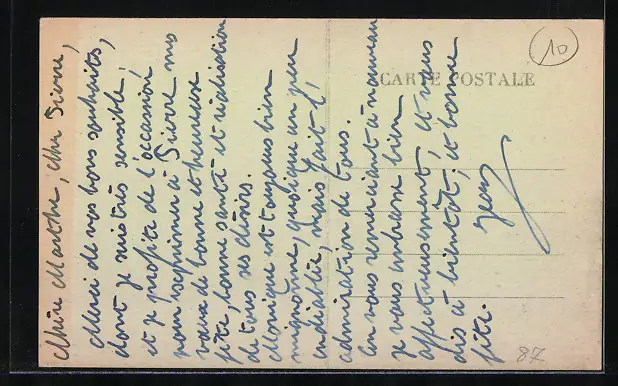 Chère Marthe, cher Pierre,
Merci de vos bons souhaits,
dont je suis très sensible,
et je profite de l'occasion
pour exprimer à Pierre mes
vœux de bonne et heureuse
fête, bonne santé et réalisation
de tous ses désirs.
Monique est toujours bien
mignonne, quoique un peu
endiablée, mais fait l'
admiration de tous.
En vous remerciant à nouveau
je vous embrasse bien
affectueusement, et vous
dis à bientôt, et bonne
fête.
CARTE POSTALE
10
87